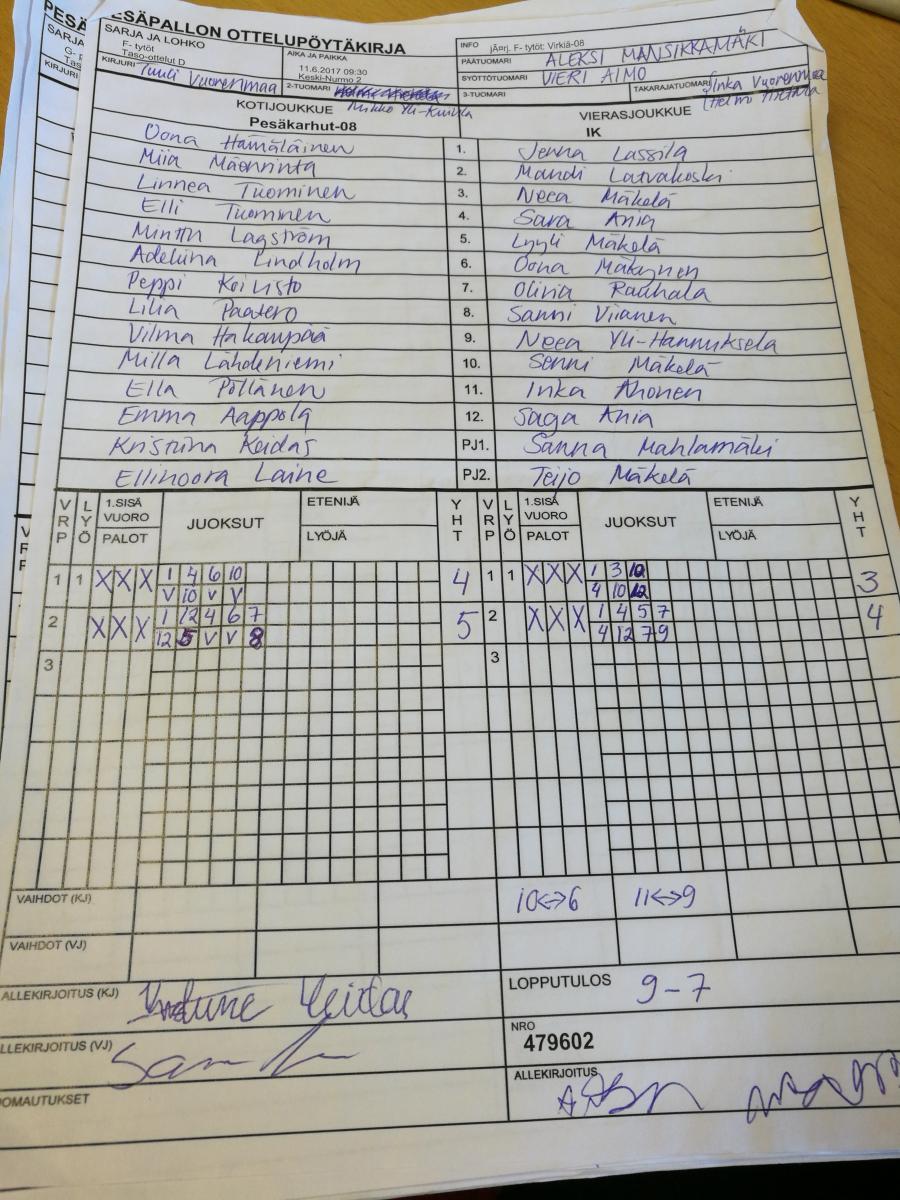 PESÄPALLON OTTELUPÖYTÄKIRJA
SARJA JA LOHKO
F- tytöt
Taso-ottelut D
AIKA JA PAIKKA
11.6.2017 09:30
Keski-Nurmo 2
INFO jÃ¤rj. F- tytöt: Virkiä-08
PÄÄTUOMARI ALEKSI MANSIKKAMÄKI
SYÖTTÖTUOMARI VIERI AIMO
KIRJURI Tuuli Vuorenmaa
2-TUOMARI Mikko Yli-
3-TUOMARI
TAKARAJATUOMARI Inka Vuorenmaa
KOTIJOUKKUE
Pesäkarhut-08
VIERASJOUKKUE
IK
Oona Hämäläinen 1. Jenna Lassila
Miia Mäenrinta 2. Mandi Latvakoski
Linnea Tuominen 3. Neea Mäkelä
Elli Tuominen 4. Sara Ania
Minttu Lagström 5. Lyyli Mäkelä
Adeliina Lindholm 6. Oona Mäkynen
Peppi Koivisto 7. Olivia Rauhala
Lilia Paatero 8. Sanni Viianen
Vilma Hakaupää 9. Neea Yli-Hannuksela
Milla Lähdeniemi 10. Senni Mäkelä
Ella Pöllänen 11. Inka Ahonen
Emma Aappola 12. Saga Ania
Kristiina Keidas PJ1. Sanna Mahlamäki
Ellinoora Laine PJ2. Teijo Mäkelä
VRP LYÖ 1.SISÄ VUORO PALOT JUOKSUT ETENIJÄ LYÖJÄ YHT VRP LYÖ 1.SISÄ VUORO PALOT JUOKSUT ETENIJÄ LYÖJÄ YHT
1 1 X X X 1 4 6 10 4 1 1 X X X 1 3 12 3
V 10 V V 4 10 12
2 X X X 1 12 4 6 7 5 2 X X X 1 4 5 7 4
12 5 V V 8 4 12 7 9
3 3
VAIHDOT (KJ) 10<->6 11<->9
VAIHDOT (VJ)
ALLEKIRJOITUS (KJ)
LOPPUTULOS 9-7
ALLEKIRJOITUS (VJ)
NRO
479602
ALLEKIRJOITUS